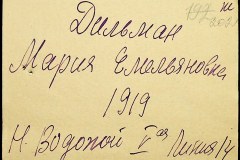 Дильман
Мария Емельяновна
1919
Н. Водопой V ая Линия 14